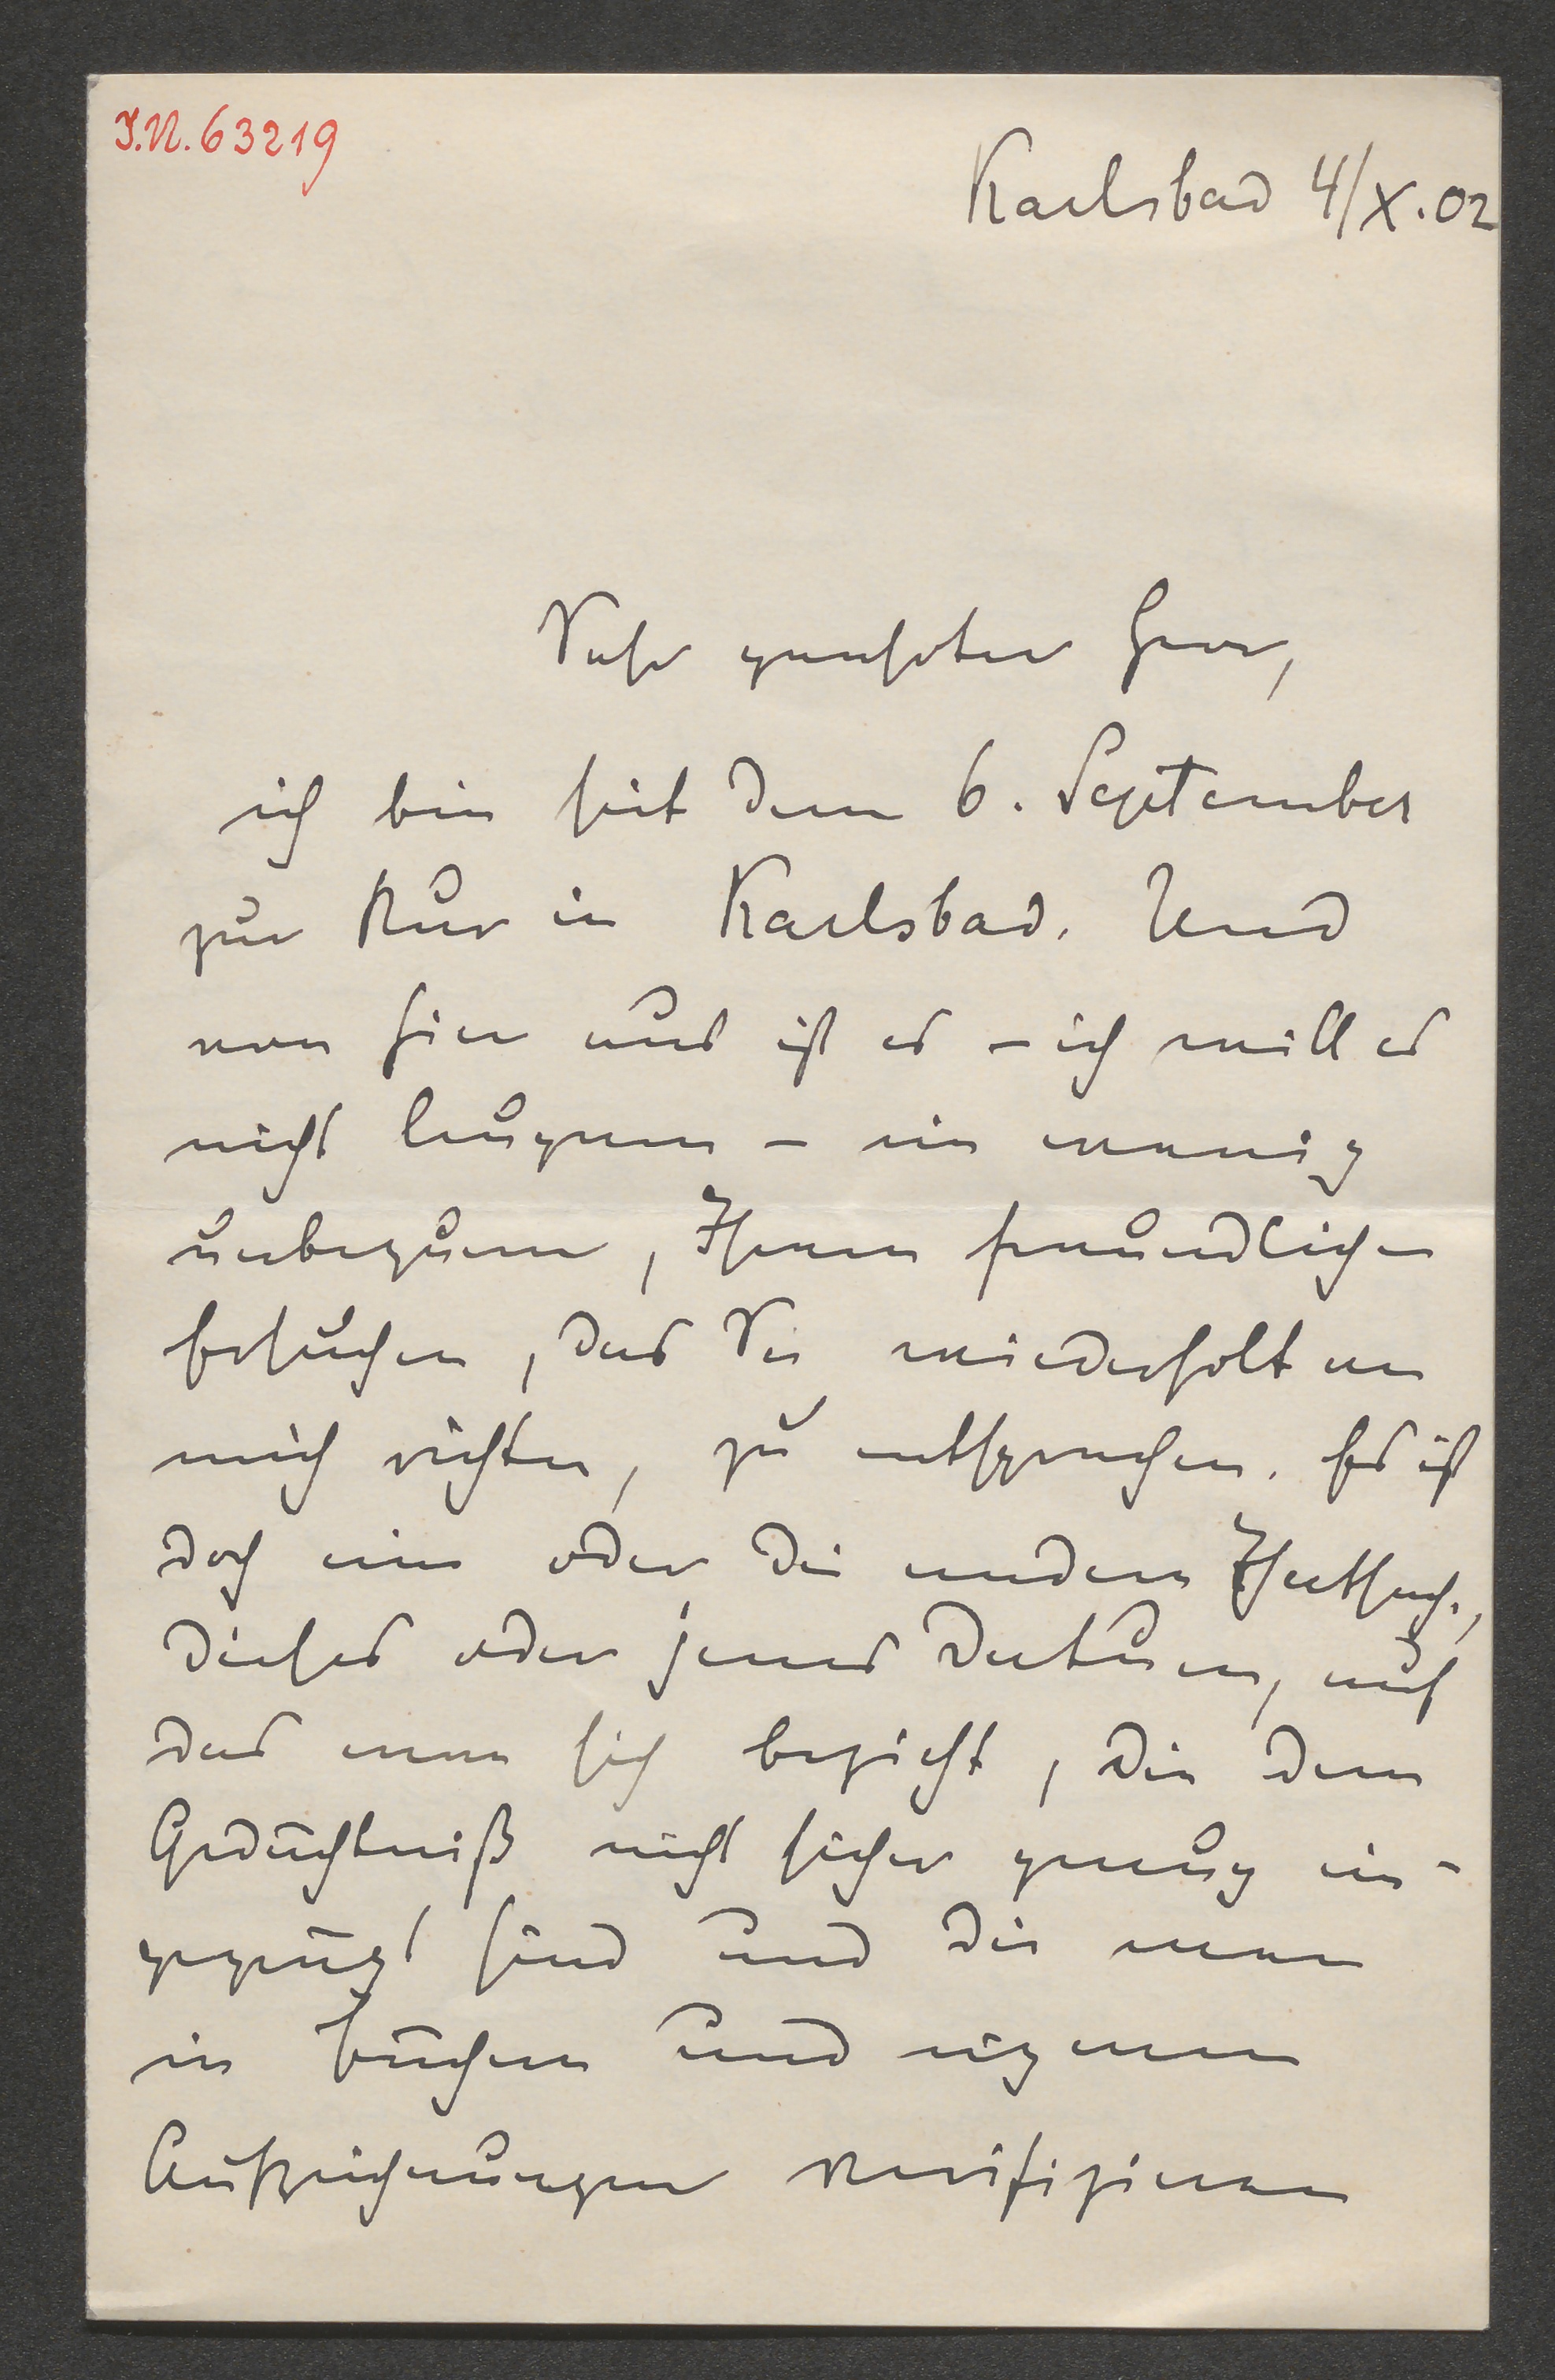 I.N. 63219
Karlsbad 4/X.02
Sehr geehrter Herr,
ich bin seit dem 6. September
zur Kur in Karlsbad. Und
von hier aus ist es – ich will es
nicht leugnen – ein wenig
unbequem, Ihrem freundlichen
Ersuchen, das Sie wiederholt an
mich richten, zu entsprechen. Es ist
doch eine oder die andere Thatsache,
dieses oder jenes Datum, auf
das man sich bezieht, die dem
Gedächtniß nicht sicher genug ein-
geprägt sind und die man
in Büchern und eigenen
Aufzeichnungen verifizieren